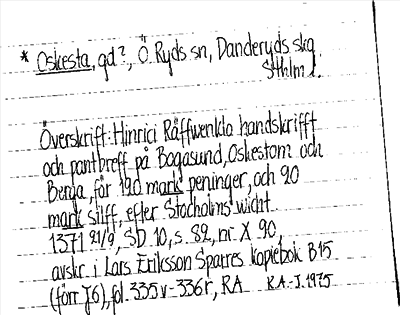 * Oskesta, gd?, Ö. Ryds sn, Danderyds skg
Sthlm l.
Överskrift: Hinrici Räffwenkla handskrifft
och pantbreff på Bogasund, Oskestom och
Berga, för 120 mark peninger, och 20
mark silff, effter Stocholms wicht
1371 21/9, SD 10, s. 82, nr. X 90,
avskr. i Lars Eriksson Sparres kopiebok B 15
(förr J 6), fol. 335 v - 336 r, RA K.A.-J. 1975